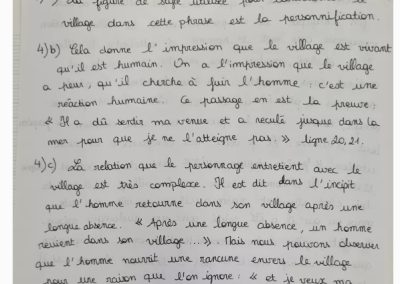 figure de style utilisée pour
village dans cette phrase est la personnification.
4)b) Cela donne l'impression que le village est vivant
qu'il est humain. On a l'impression que le village
a peur, qu'il cherche à fuir l'homme : c'est une
réaction humaine. Ce passage en est la preuve:
« Il a dû sentir ma venue et a reculé jusque dans la
mer pour que je ne l'atteigne pas. » ligne 20,21.
4)c) La relation que le personnage entretient avec le
village est très complexe. Il est dit dans l'incipit
que l'homme retourne dans son village après une
longue absence. « Après une longue absence, un homme
revient dans son village...». Mais nous pouvons observer
que l'homme nourrit une rancune envers le village
pour une raison que l'on ignore: « et je veux ma